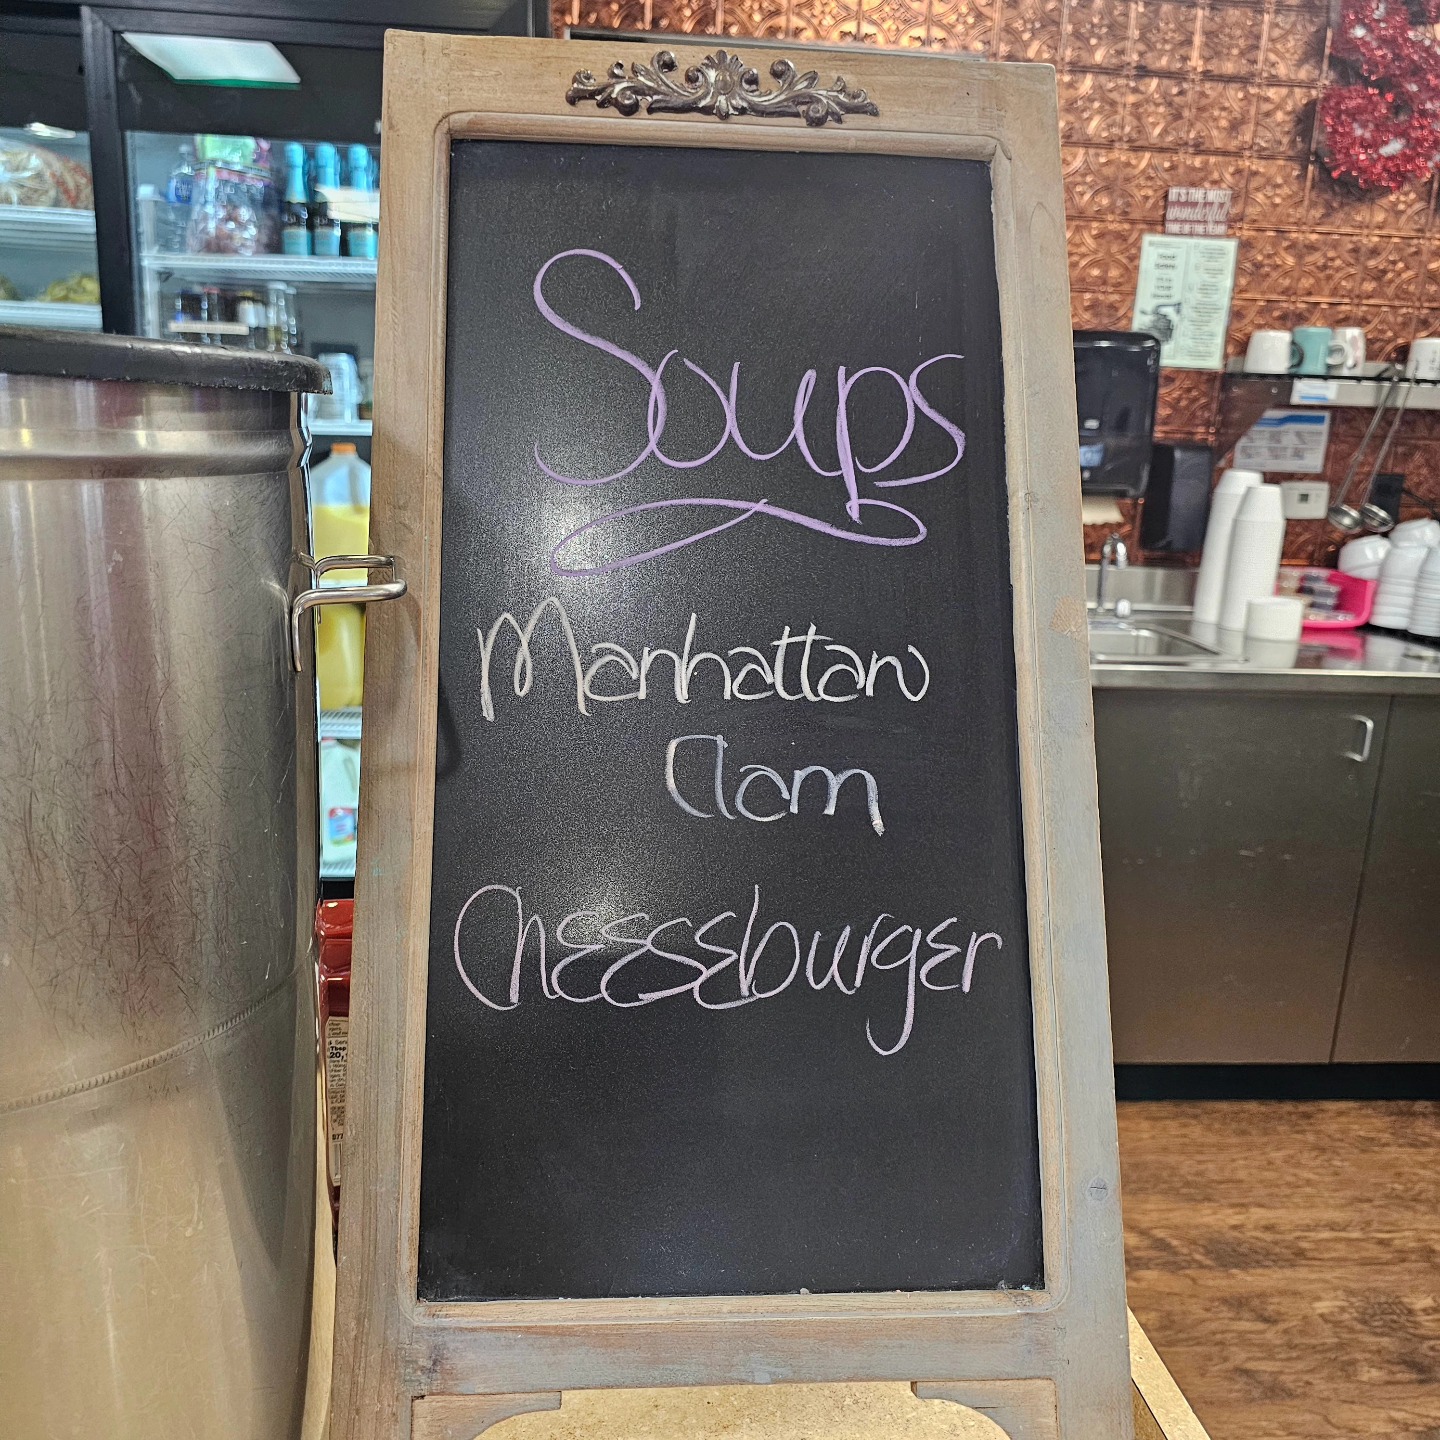 Soups
Manhattan
Clam
Cheeseburger
IT'S THE MOST
wonderful
TIME OF THE YEAR